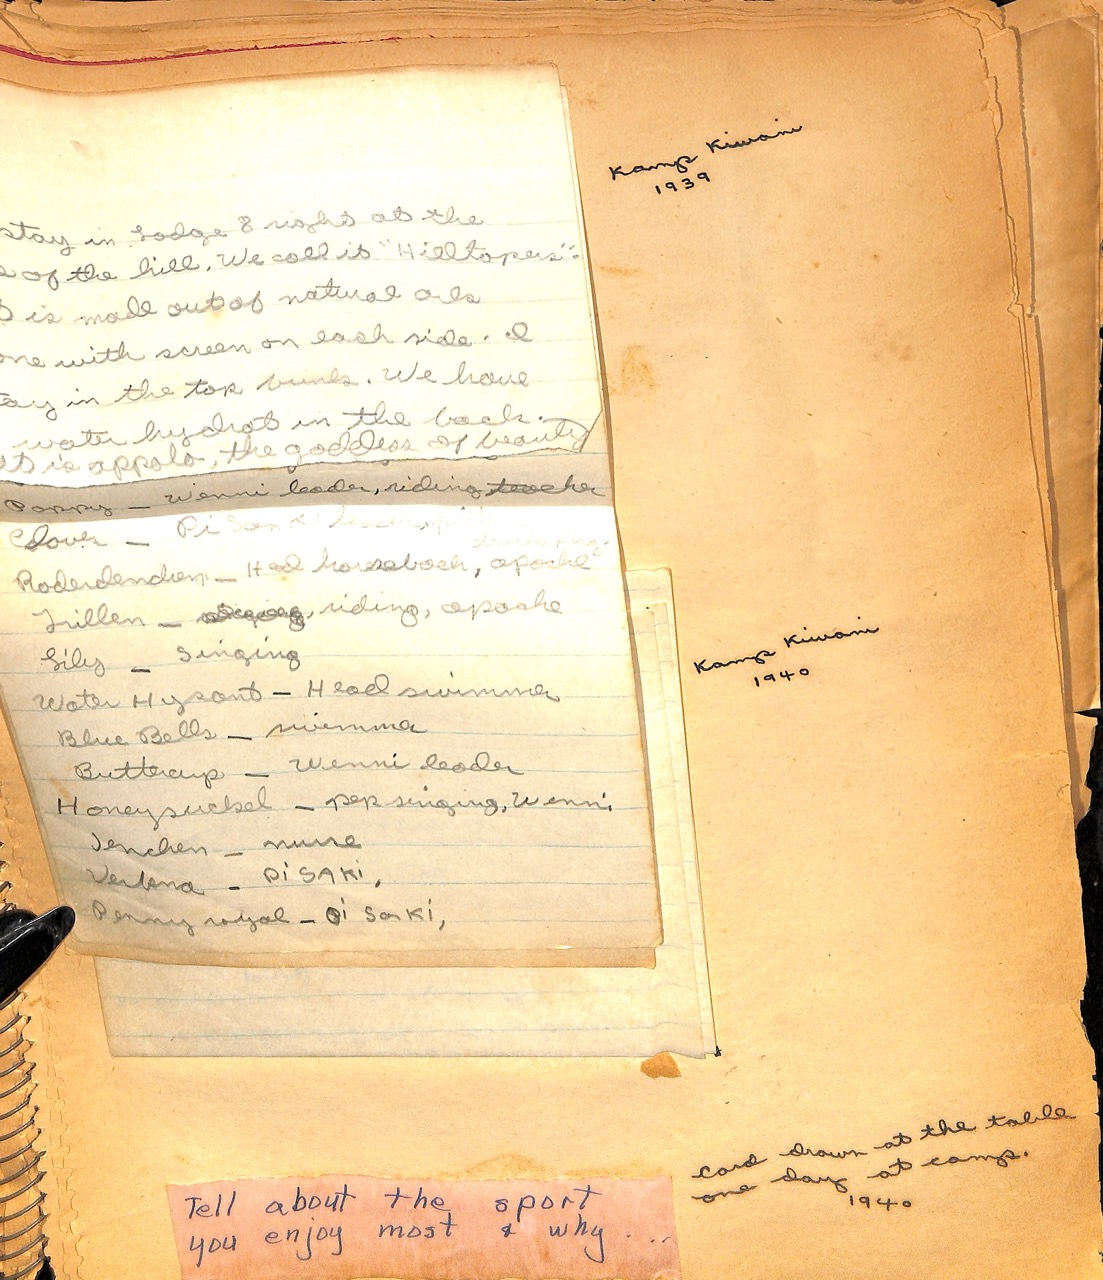 Kamp Kiwani
1939
stay in Lodge 8 right at the
of the hill. We call it "Hilltopers".
is made out of natural
one with screen on each side. I
in the top bunks. We have
water hydrot in the back.
It is appolo, the goddess of beauty
Poppy - Wenni leader, riding teacher
Clover - Pi San Ki
Roderdendren - Head horseback, apache
Trillen - riding, apache
Lily - Singing
Water Hysont - Head swimmer
Blue Bells - swimmer
Buttercup - Wenni leader
Honeysuckel - pep singing, Wenni
- nurse
Verbena - Pi SAKi,
Penny royal - Pi SaKi,
Kamp Kiwani
1940
card drawn at the table
one day at camp.
1940
Tell about the sport
you enjoy most & why ...